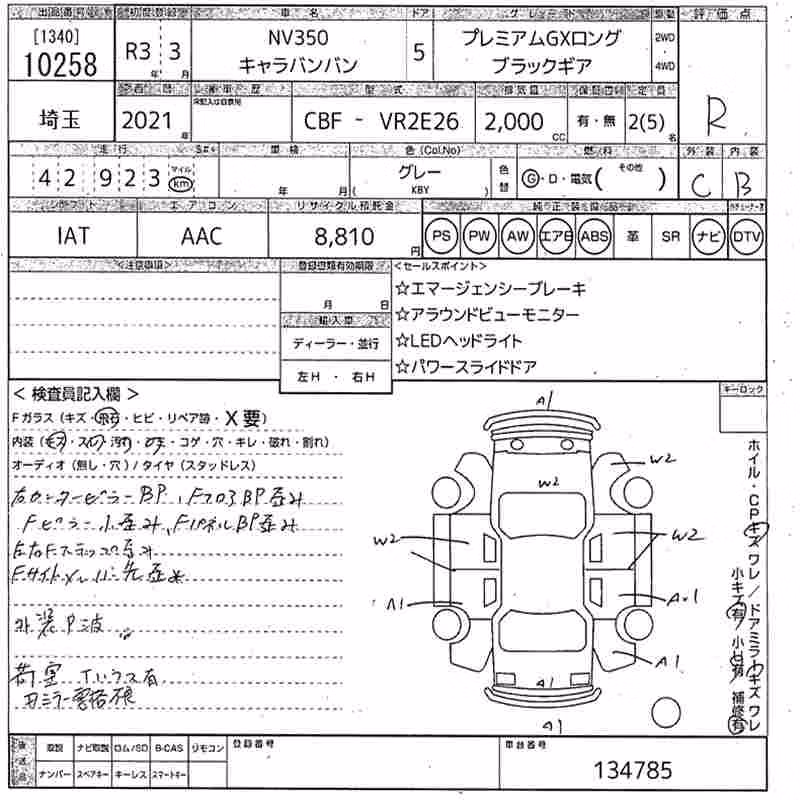 出品番号 初度登録 車名 ドア グレード 駆動 評価点
[1340]
10258
R3年 3月
NV350
キャラバンバン
5
プレミアムGXロング
ブラックギア
2WD
・
4WD
R
車歴 型式 排気量 定員
埼玉
2021年
CBF - VR2E26
2,000CC
有・無
2(5)名
走行 車検 色(Col.No) 燃料 外装 内装
42 923 マイル km
年 月
グレー
( KBY )
色替
G・D・電気( その他 )
C
B
シフト エアコン リサイクル預託金 純正装備品
IAT
AAC
8,810円
PS PW AW エアB ABS 革 SR ナビ DTV
<注意事項>
登録書類有効期限
月 日
輸入車
ディーラー・並行
左H ・ 右H
<セールスポイント>
☆エマージェンシーブレーキ
☆アラウンドビューモニター
☆LEDヘッドライト
☆パワースライドドア
< 検査員記入欄 >
Fガラス (キズ・飛石・ヒビ・リペア跡・X要)
内装 (キズ・スレ・汚れ・コゲ・穴・キレ・破れ・割れ)
オーディオ (無し・穴) / タイヤ (スタッドレス)
右センターピラーBP、FフロアBP歪み
Fピラー小歪み、FパネルBP歪み
左右Fステップ歪み
Fサイドメンバー先歪み
外装P波
荷室
キーロック
A1
W2
W2
W2
W2
A1
A1
A1
A1
A1
ホイル・CPキズワレ/ドアミラーキズワレ
小キズ有 小凹有 補修有
後送品
取説 ナビ取説 ロム/SD B-CAS リモコン
ナンバー スペアキー キーレス スマートキー
登録番号
車台番号
134785